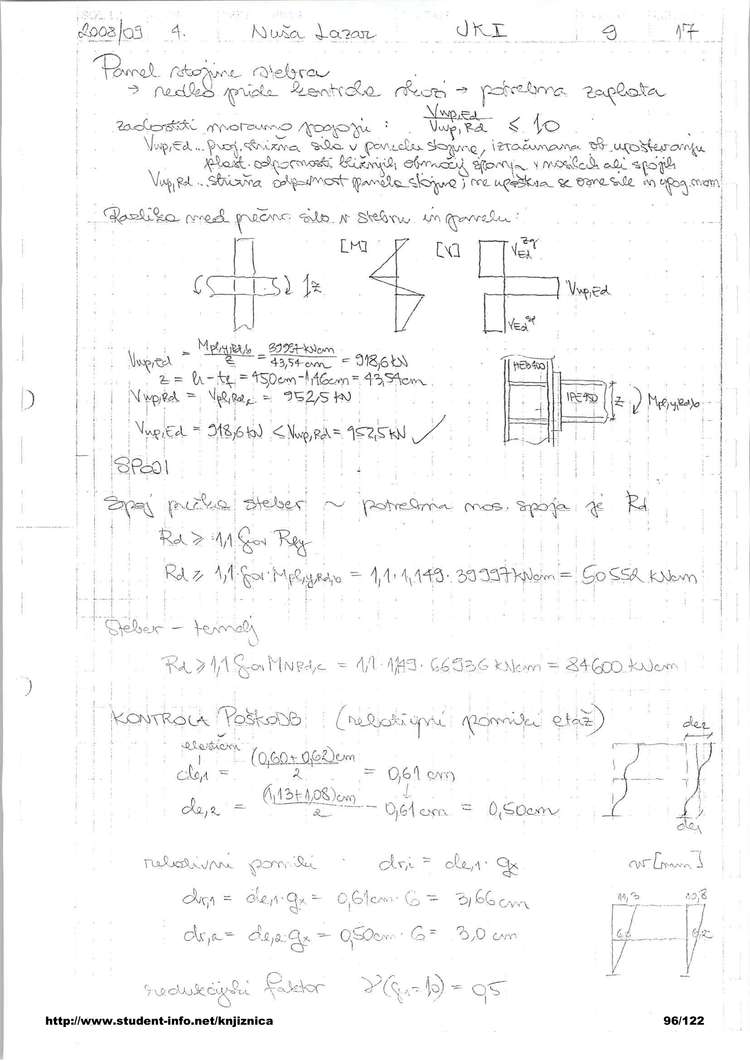 2008/09 4. Nuša Lazar JK I 9 17
Panel stojine stebra
→ redko pride kontrola skozi → potrebna zaplata
zadostiti moramo pogoju : Vwp,Ed / Vwp,Rd ≤ 1,0
Vwp,Ed .. proj. strižna sila v panelu stojine, izračunana ob upoštevanju
plast. odpornosti bližnjih območij sipanja v nosilcih ali spojih
Vwp,Rd .. strižna odpornost panela stojine; ne upošteva se osne sile in upog. mom
Razlika med prečno silo v stebru in panelu:
[M] [V] VEd zg
z Vwp,Ed
VEd sp
Vwp,Ed = Mpl,y,Rd,b / z = 39997 kNcm / 43,54 cm = 918,6 kN
z = h - tf = 45,0cm - 1,46cm = 43,54cm
Vwp,Rd = Vpl,Rd,c = 952,5 kN
HEB400 IPE450 z Mpl,y,Rd,b
Vwp,Ed = 918,6 kN < Vwp,Rd = 952,5 kN ✓
SPOJI
Spoj prečka steber ~ potrebna nos. spoja je Rd
Rd ≥ 1,1 γov Rfy
Rd ≥ 1,1 γov · Mpl,y,Rd,b = 1,1 · 1,149 · 39997 kNcm = 50552 kNcm
Steber - temelj
Rd ≥ 1,1 γov MNRd,c = 1,1 · 1,149 · 66936 kNcm = 84600 kNcm
KONTROLA POŠKODB (relativni pomiki etaž)
elastičen
de,1 = (0,60 + 0,62)cm / 2 = 0,61 cm
de,2 = (1,13 + 1,08)cm / 2 - 0,61 cm = 0,50cm
de2
de1
relativni pomiki dr,i = de,i · qx
dr,1 = de,1 · qx = 0,61cm · 6 = 3,66cm
dr,2 = de,2 · qx = 0,50cm · 6 = 3,0 cm
v [mm]
11,3 10,8
6,0 6,2
redukcijski faktor = 0,5
http://www.student-info.net/knjiznica 96/122